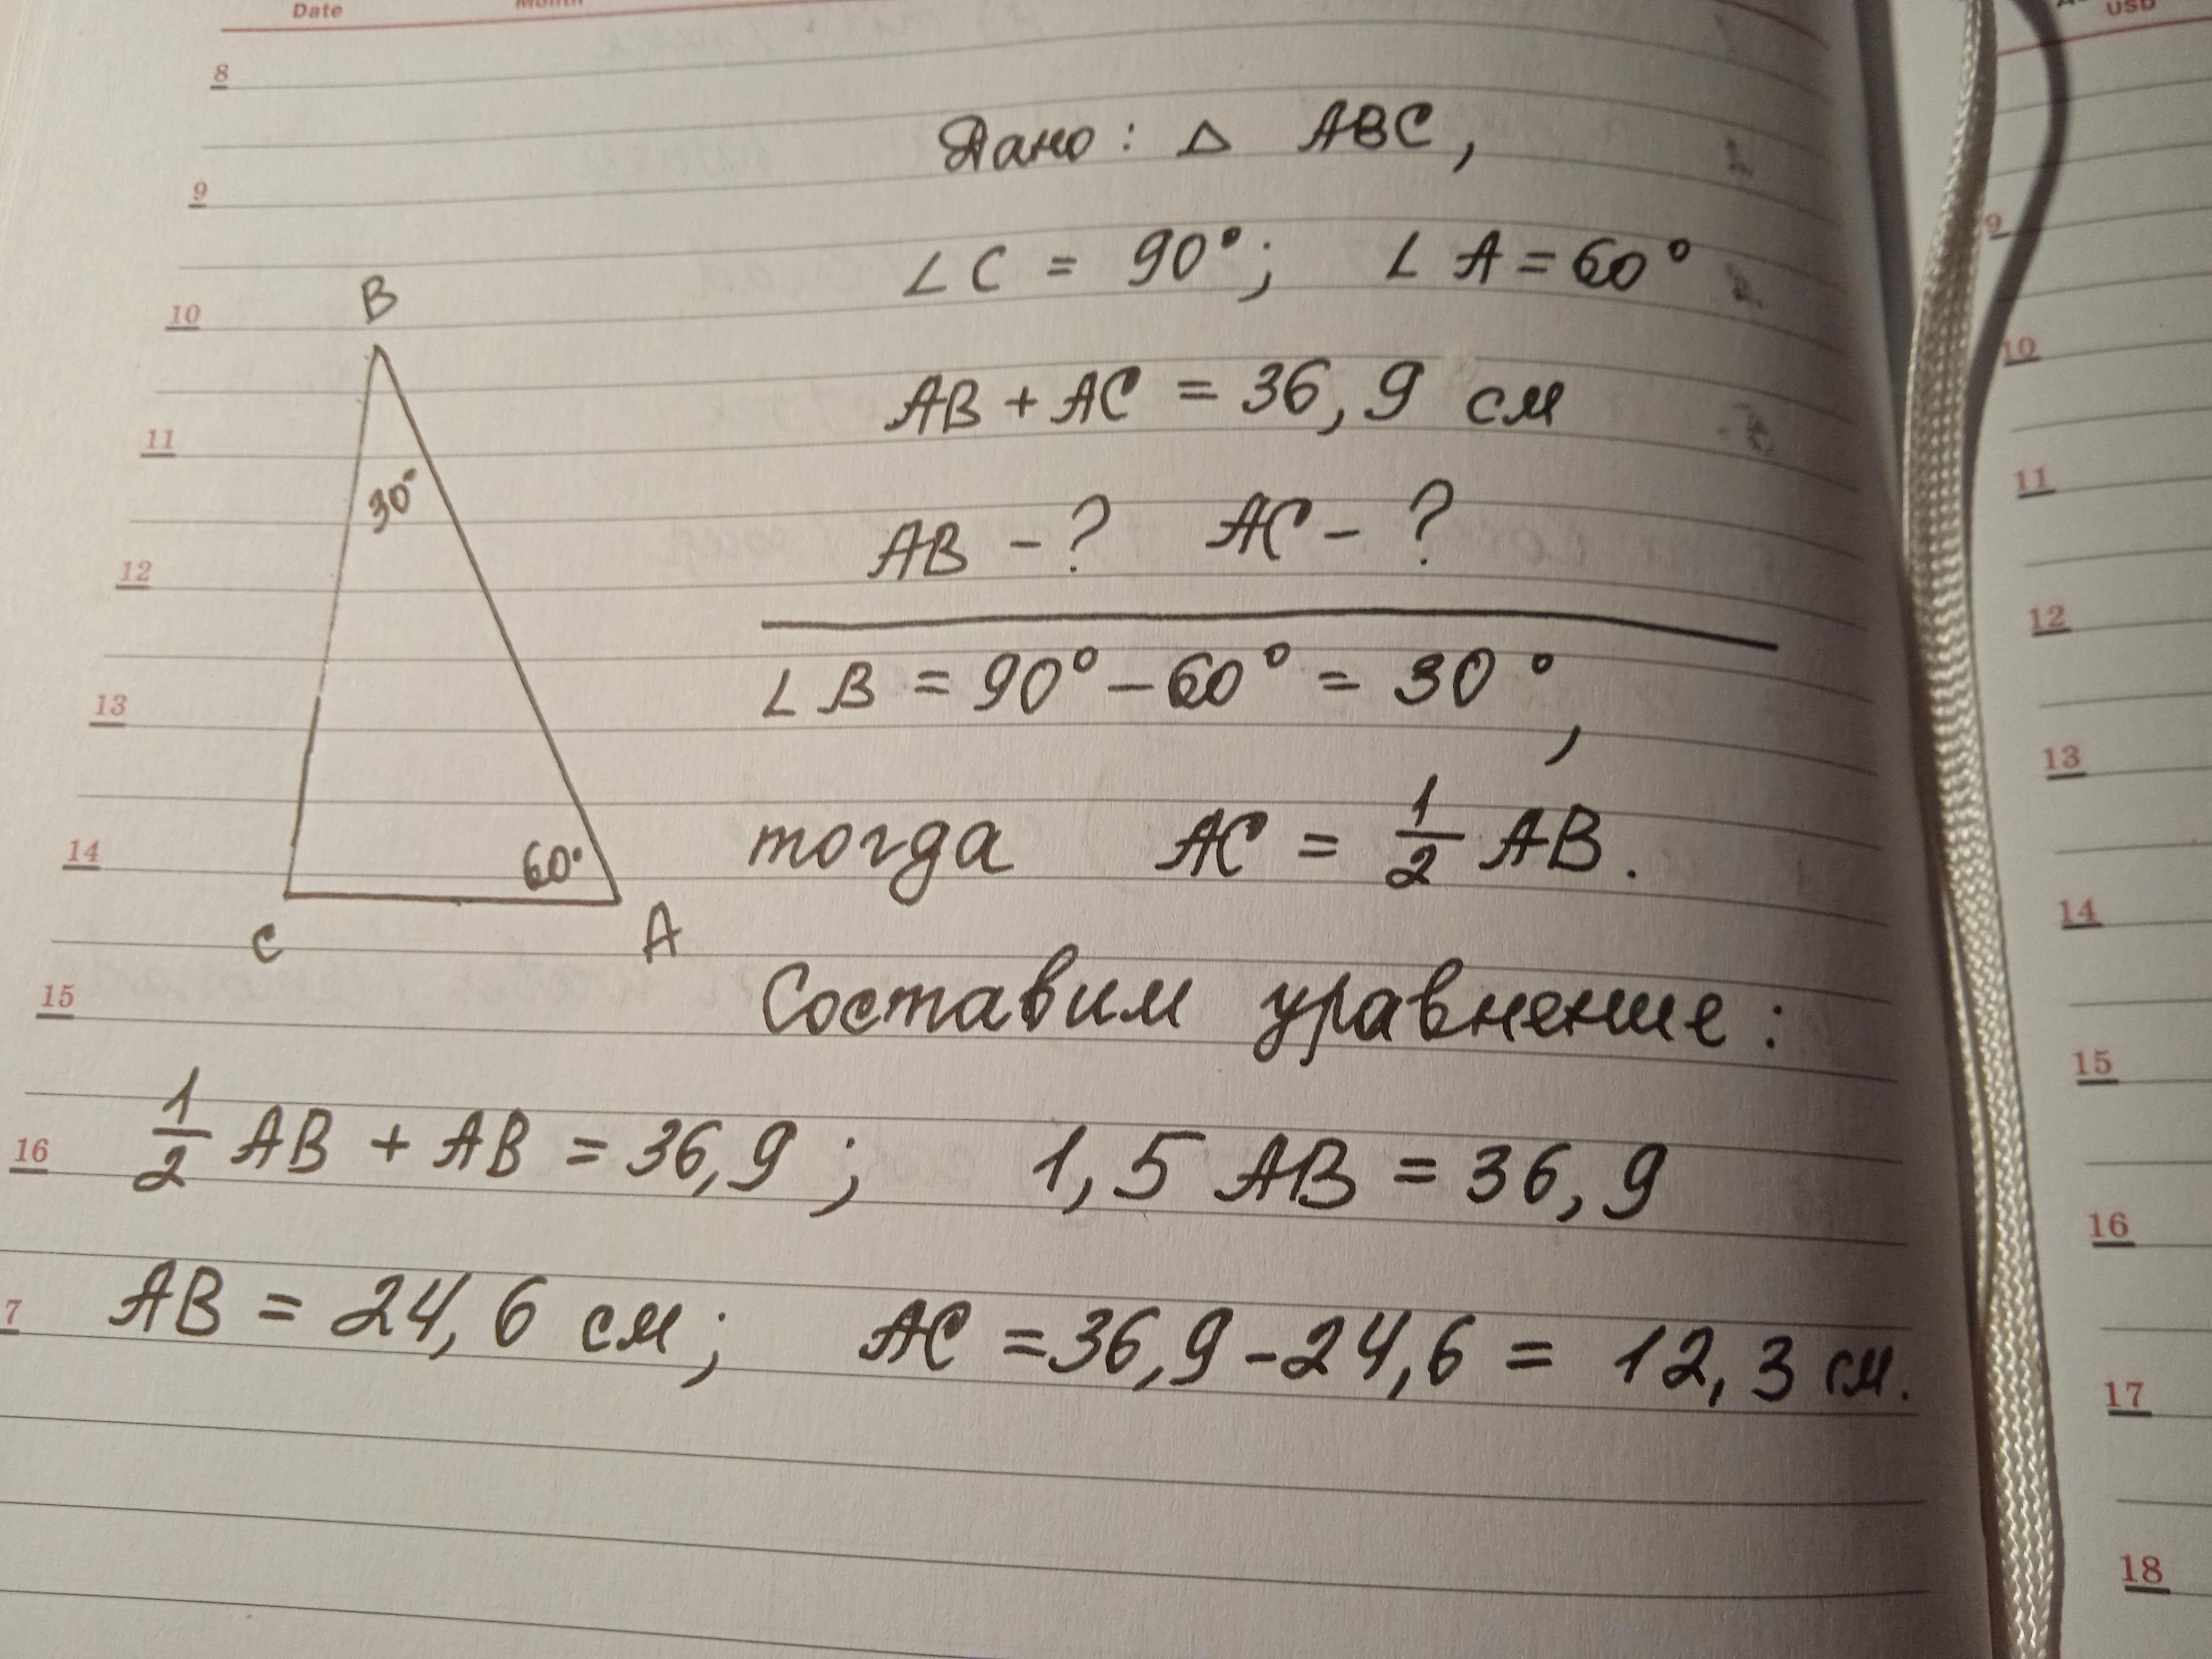 Date Month
USD
8
Дано: △ ABC,
9
∠C = 90°; ∠A = 60°
10
B
AB + AC = 36,9 см
11
30°
AB - ? AC - ?
12
∠B = 90° - 60° = 30°,
13
тогда AC = 1/2 AB.
14
60°
C A
Составим уравнение:
15
1/2 AB + AB = 36,9; 1,5 AB = 36,9
16
AB = 24,6 см; AC = 36,9 - 24,6 = 12,3 см.
7
9
10
11
12
13
14
15
16
17
18